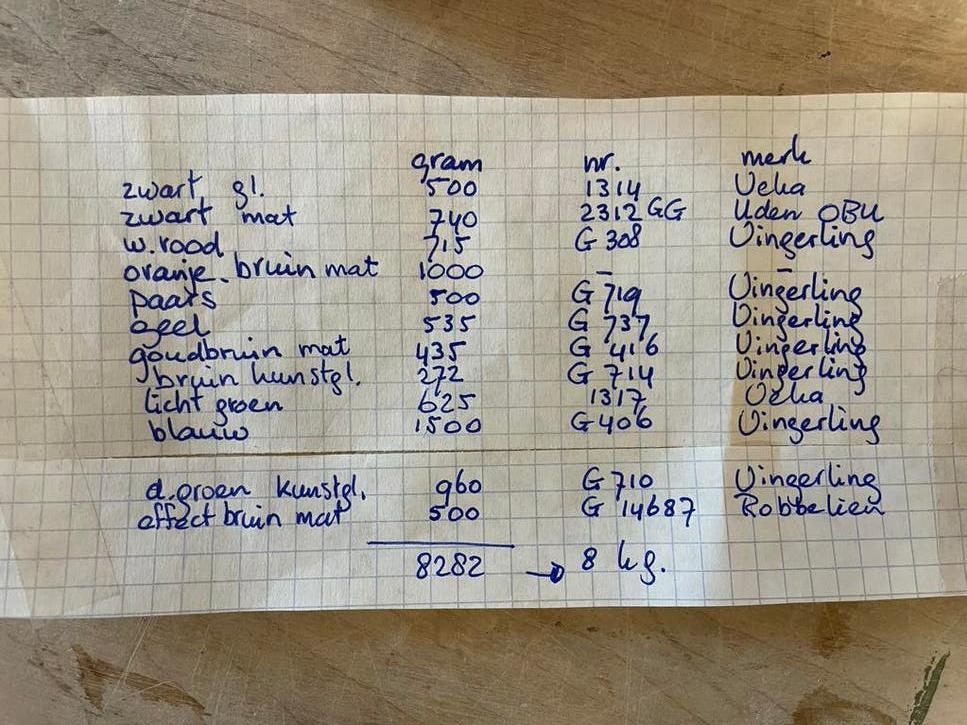 gram nr. merk
zwart gl. 500 1314 Veka
zwart mat 740 2312 GG Uden OBU
w.rood 715 G 308 Vingerling
oranje.bruin mat 1000 – –
paars 500 G 719 Vingerling
geel 535 G 737 Vingerling
goudbruin mat 435 G 416 Vingerling
bruin kunstgl. 272 G 714 Vingerling
licht groen 625 1317 Veka
blauw 1500 G 406 Vingerling
d.groen kunstgl. 960 G 710 Vingerling
effect bruin mat 500 G 14687 Robbelien
8282 → 8 kg.